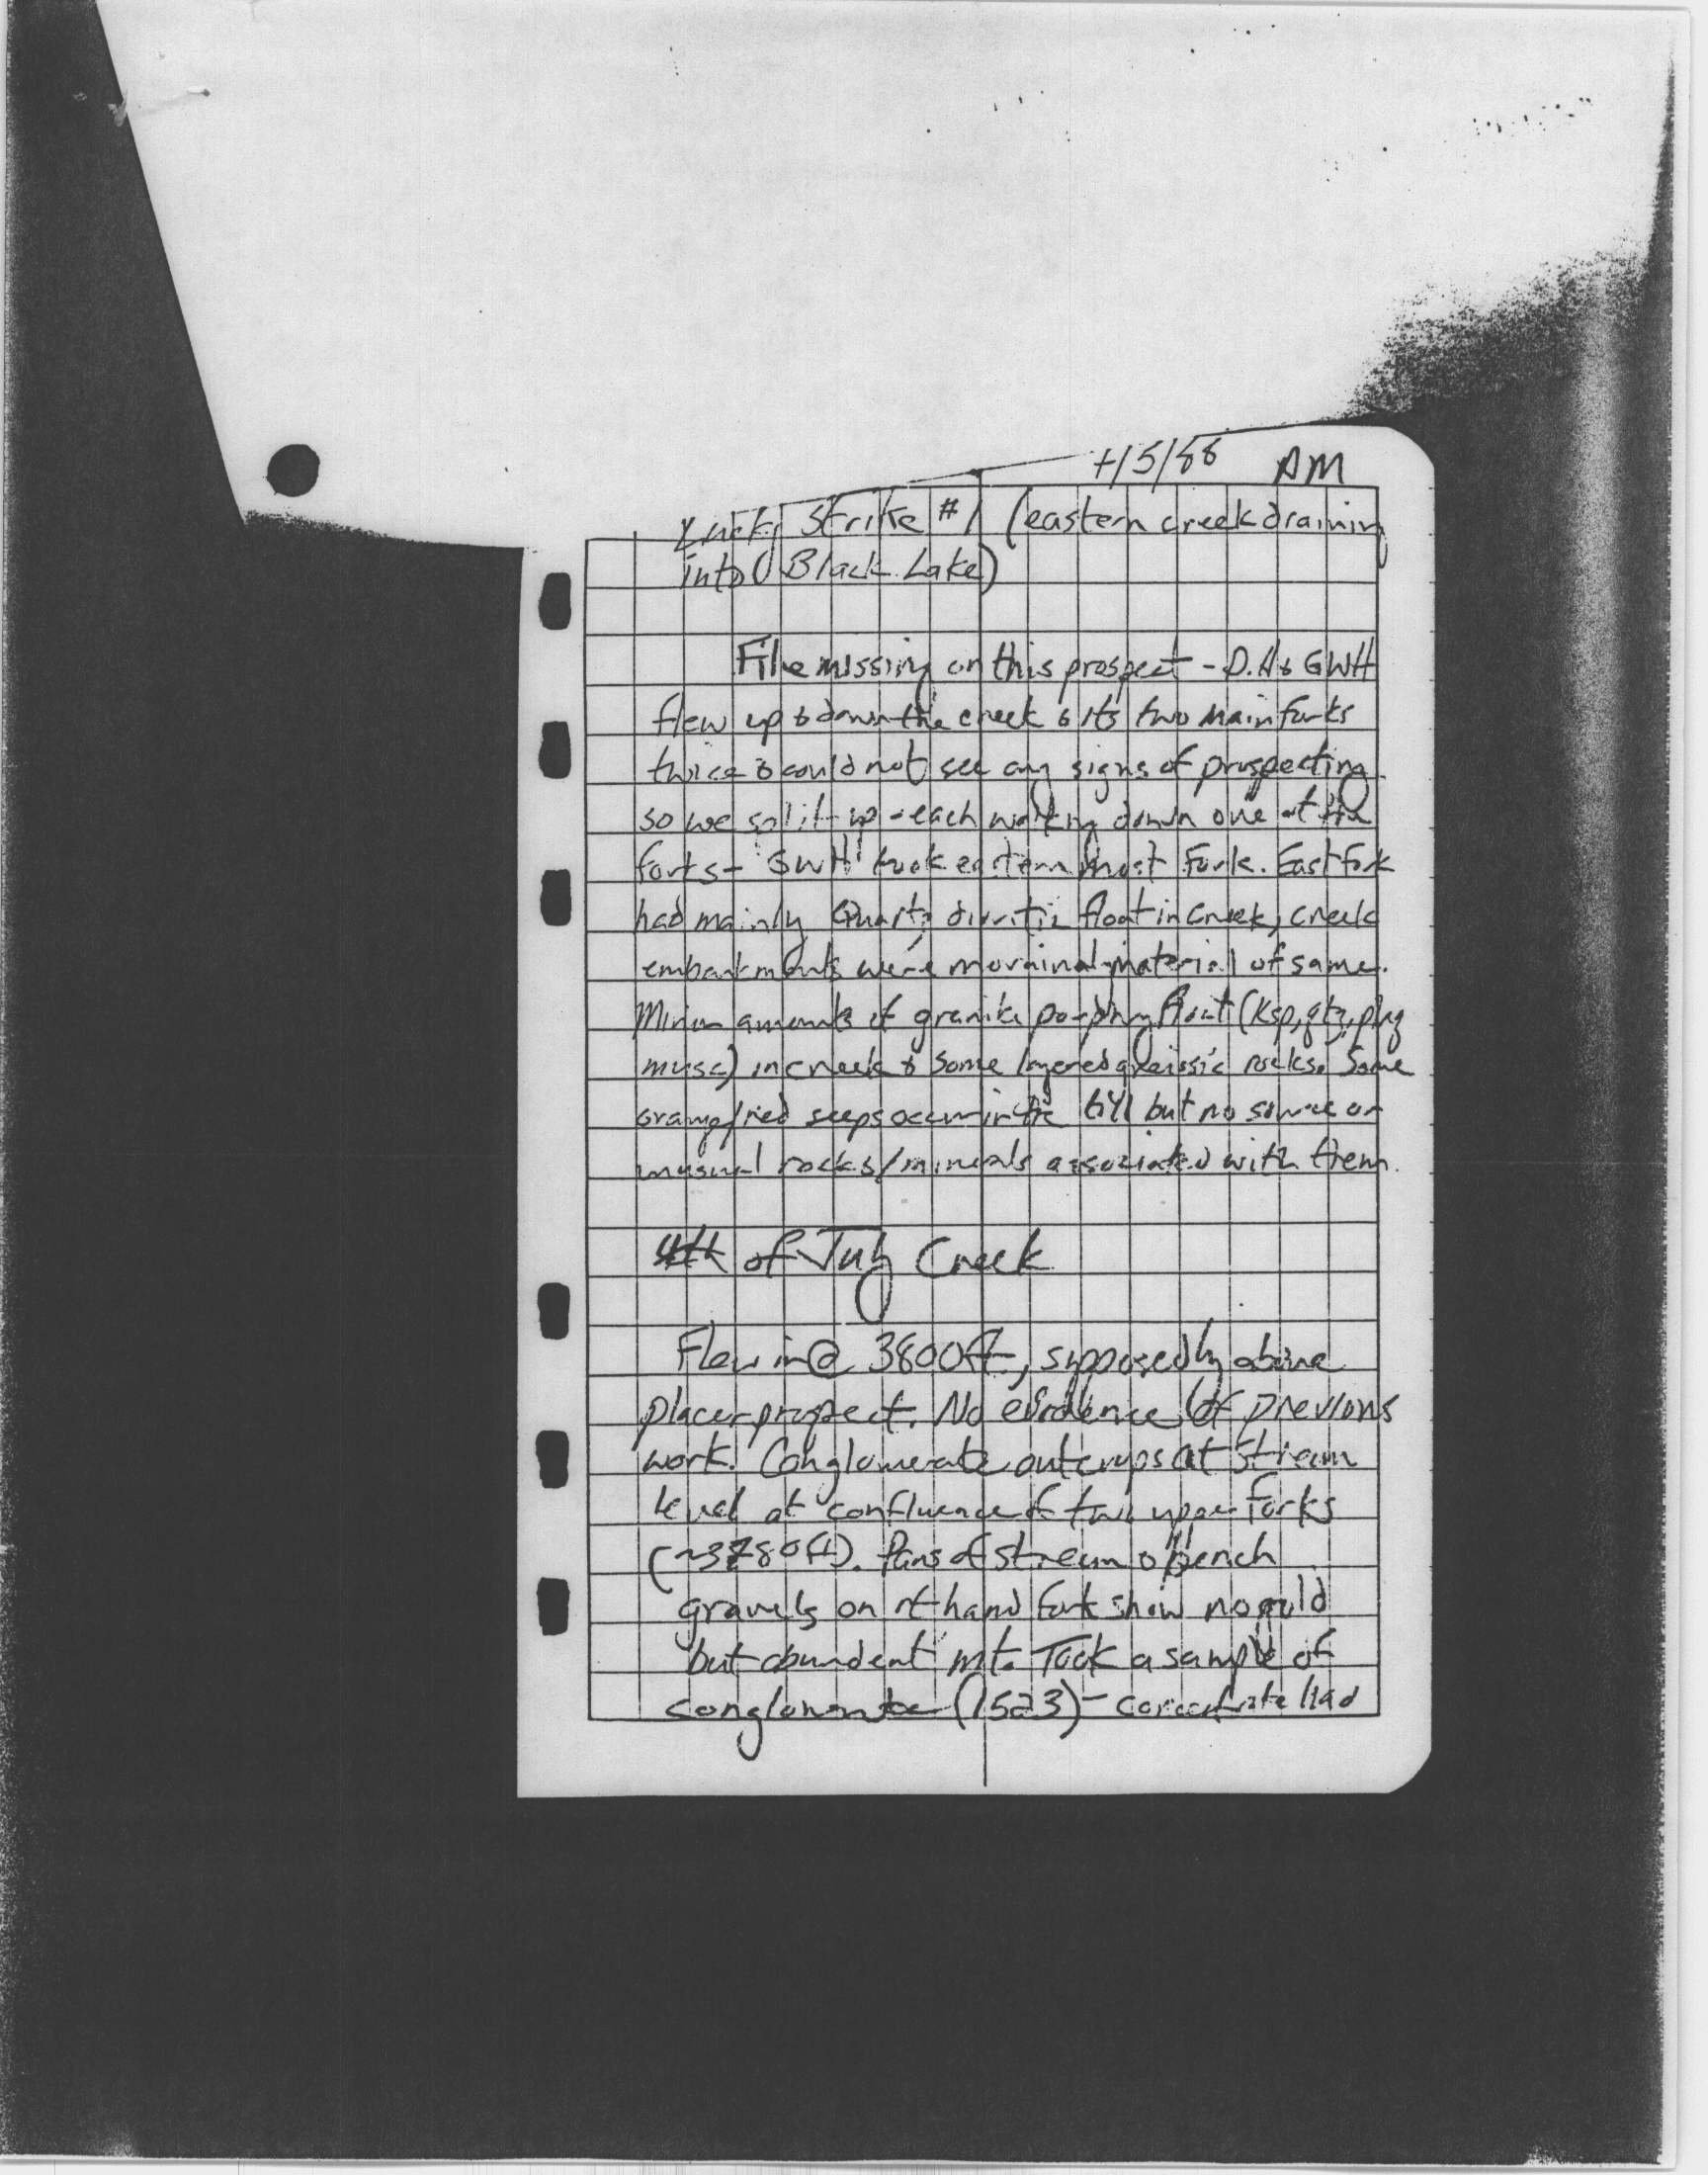 7/5/88 AM
Lucky Strike #1 (eastern creek draining
into Black Lake)
File missing on this prospect - D.H & GWH
flew up & down the creek & its two main forks
twice & could not see any signs of prospecting
so we split up - each walking down one of the
forks - GWH took eastern most fork. East fork
had mainly Quartz dioritic float in creek, creek
embankments were morainal material of same.
Minor amounts of granite porphry float (Ksp, qtz, plag
musc) in creek & some layered gneissic rocks. Some
orange/red seeps occur in the till but no source or
unusual rocks/minerals associated with them.
4th of July Creek
Flew in @ 3800ft, supposedly above
placer prospect. No evidence of previous
work. Conglomerate outcrops at stream
level at confluence of two upper forks
(~3780ft). Pans of stream & bench
gravels on rt hand fork show no gold
but abundent mt. Took a sample of
conglomerate (1523) - concentrate had